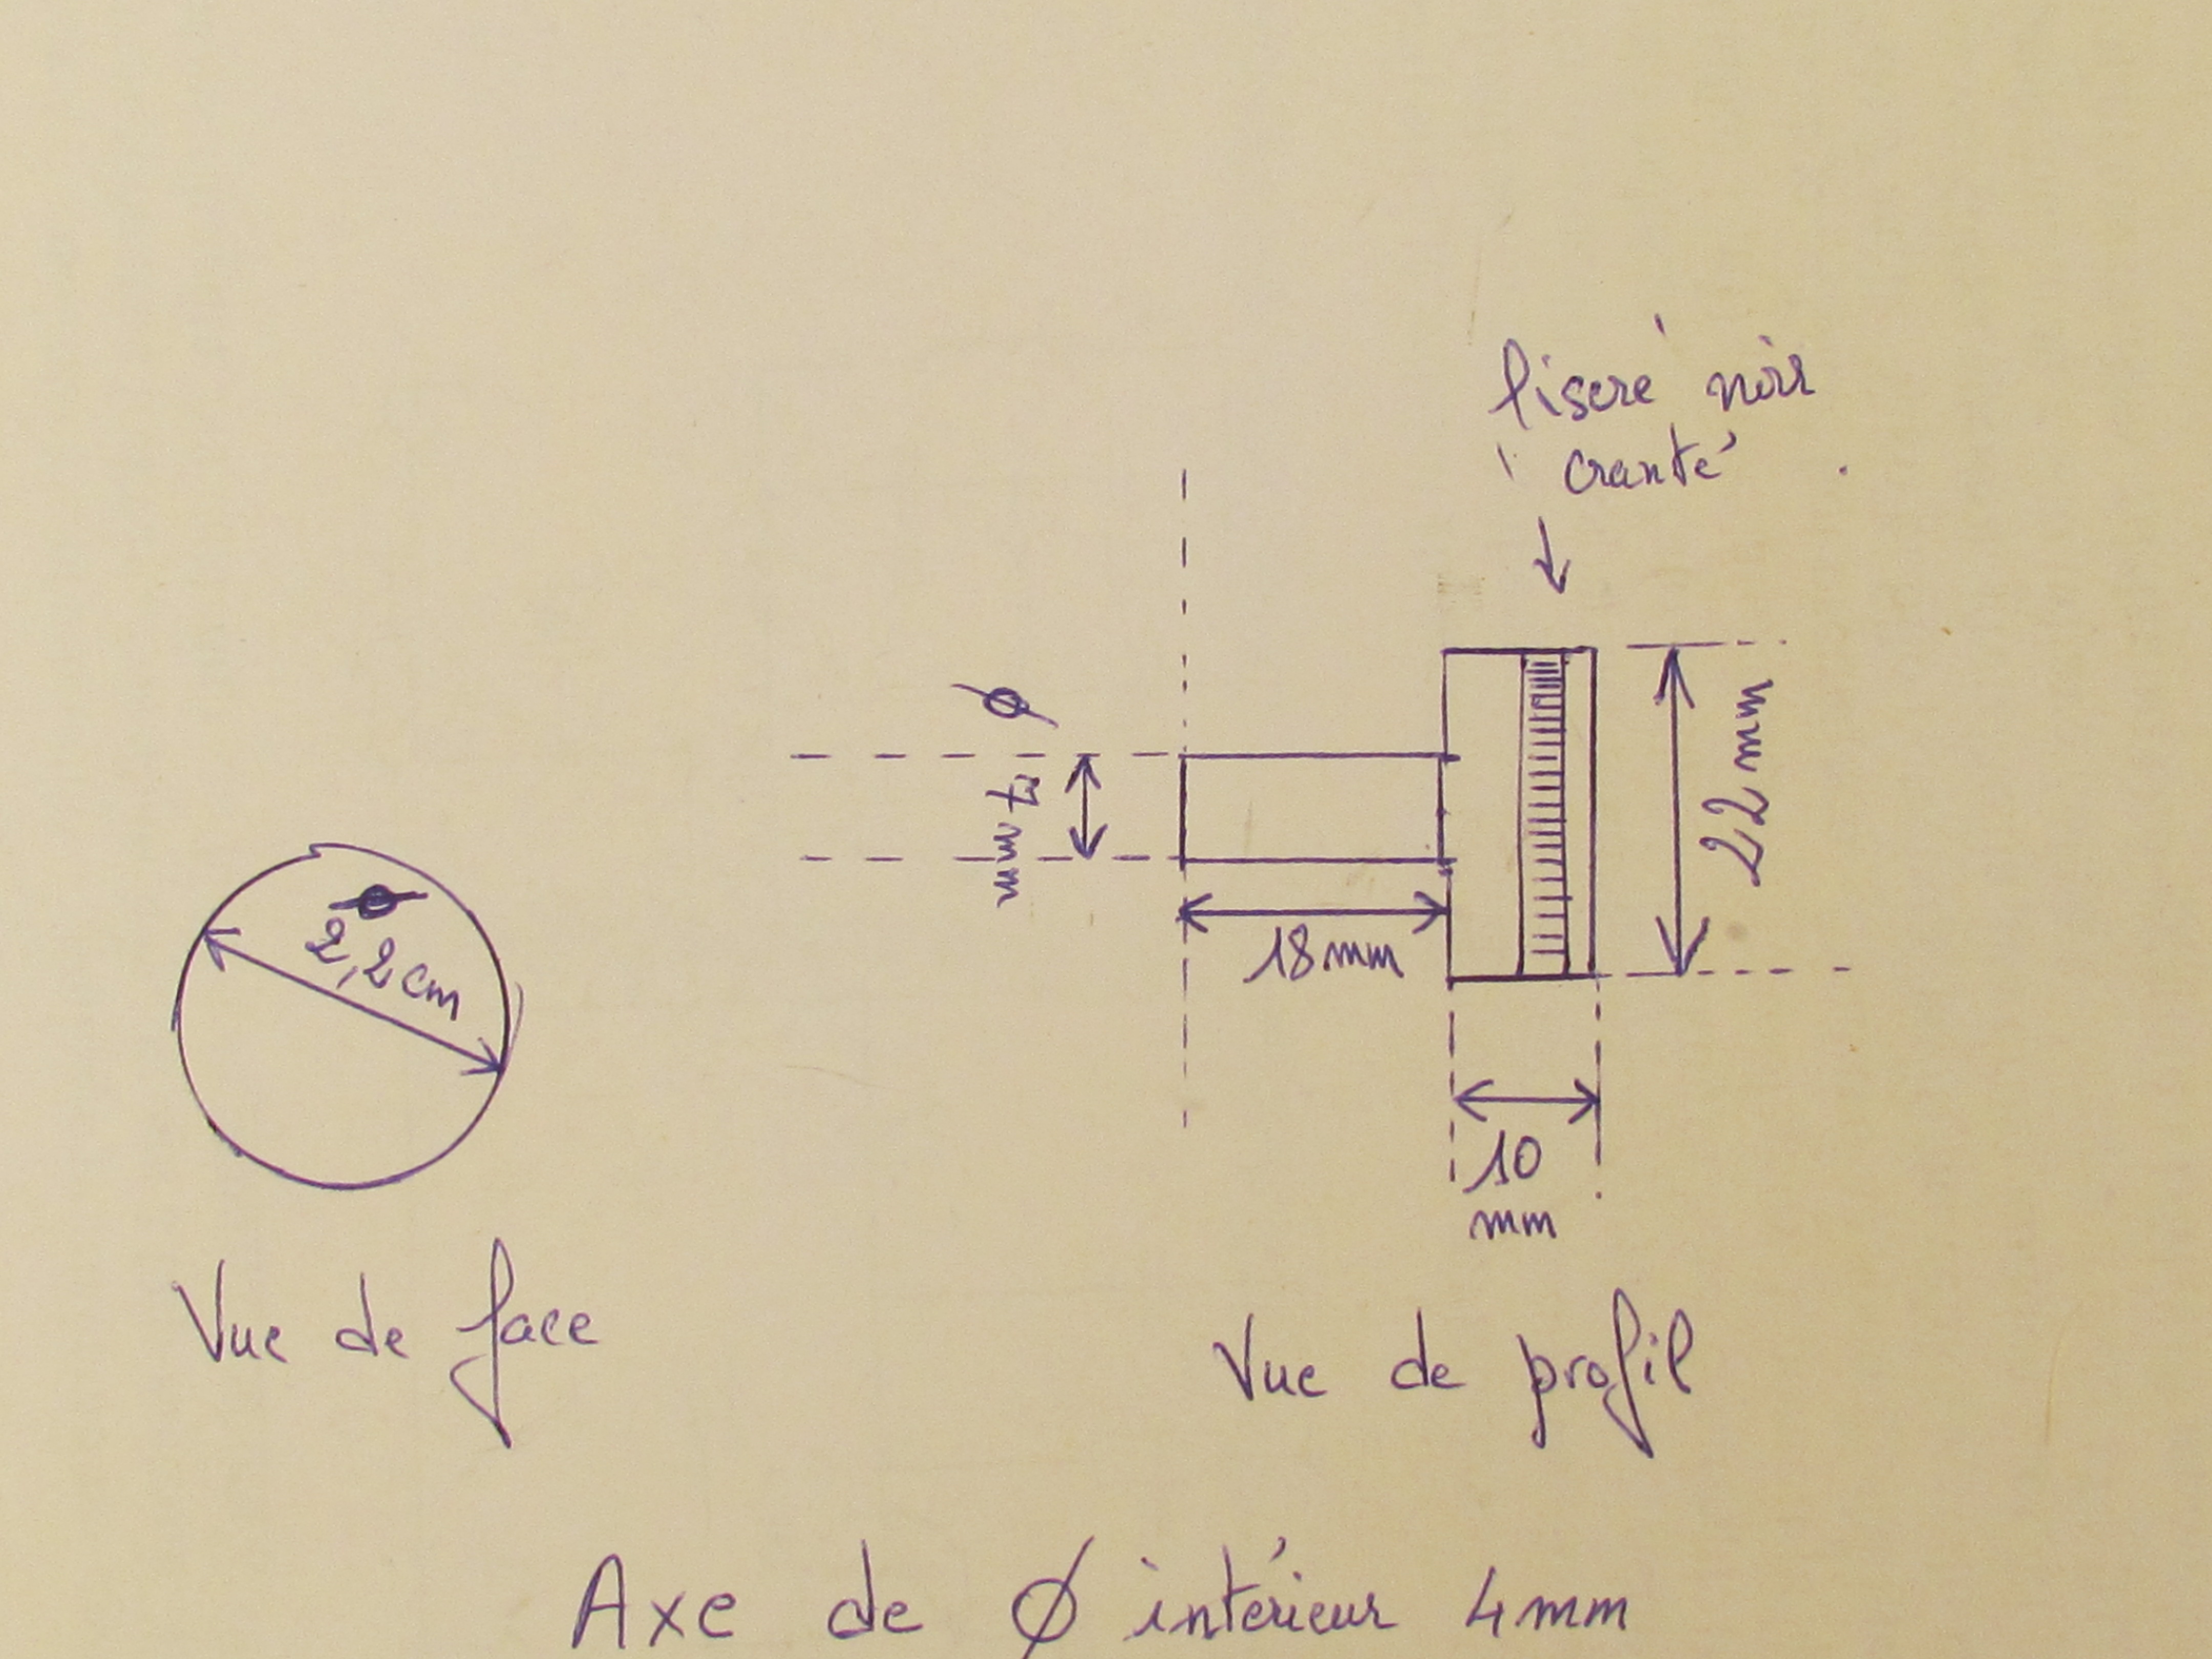 liseré noir
cranté
Ø
7 mm
22 mm
Ø
2,2 cm
18 mm
10
mm
Vue de face
Vue de profil
Axe de Ø intérieur 4mm